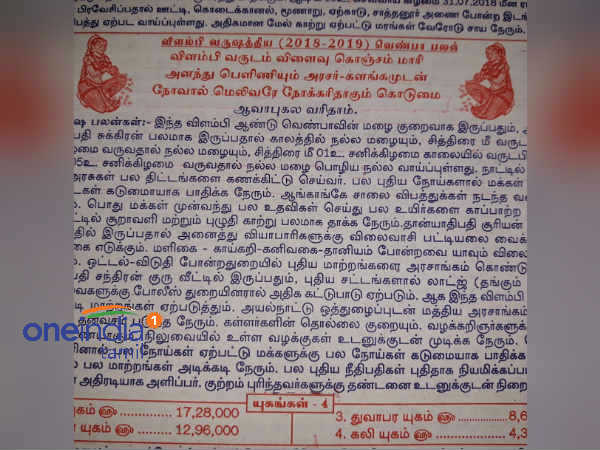 பிரவேசிப்பதால் ஊட்டி, கொடைக்கானல், மூணாறு, ஏற்காடு, சாத்தனூர் அணை போன்ற இடங்
பத்து ஏற்பட வாய்ப்புள்ளது. அதிகமான மேல் காற்று ஏற்பட்டு மரங்கள் வேரோடு சாய நேரும்.
விளம்பி வருஷத்திய (2018-2019) வெண்பா பலன்
விளம்பி வருடம் விளைவு கொஞ்சம் மாரி
அளந்து பெளிணியும் அரசர்-களங்கமுடன்
நோவால் மெலிவரே நோக்கரிதாகும் கொடுமை
ஆவாபுகல வரிதாம்.
ஷ பலன்கள்:- இந்த விளம்பி ஆண்டு வெண்பாவின் மழை குறைவாக இருப்பதும்,
பதி சுக்கிரன் பலமாக இருப்பதால் காலத்தில் நல்ல மழையும், சித்திரை மீ வருட
மை வருவதால் நல்ல மழையும், சித்திரை மீ 01உ சனிக்கிழமை காலையில் வருடபி
05உ சனிக்கிழமை வருவதால் நல்ல மழை பொழிய நல்ல வாய்ப்புள்ளது. நாட்டில்
அரசுகள் பல திட்டங்களை கணக்கிட்டு செய்வர். பல புதிய நோய்களால் மக்கள்
டகள் கடுமையாக பாதிக்க நேரும். ஆங்காங்கே சாலை விபத்துக்கள் நடந்த வ
. பொது மக்கள் முன்வந்து பல உதவிகள் செய்து பல உயிர்களை காப்பாற்ற
ட்டில் சூறாவளி மற்றும் புழுதி காற்று பலமாக தாக்க நேரும்.தான்யாதிபதி சூரியன்
தில் இருப்பதால் அனைத்து வியாபாரிகளுக்கு விலைவாசி பட்டியலை வைக்
கை எடுக்கும். மளிகை - காய்கறி-கனிவகை-தானியம் போன்றவை யாவும் விலை
. ஒட்டல்-விடுதி போன்றதுறையில் புதிய மாற்றங்களை அரசாங்கம் கொண்டு
பதி சந்திரன் குரு வீட்டில் இருப்பதும், புதிய சட்டங்களால் லாட்ஜ் (தங்கும்
வகளுக்கு போலீஸ் துறையினரால் அதிக கட்டுபாடு ஏற்படும். ஆக இந்த விளம்பி
டி மாற்றங்கள் ஏற்படுத்தும். அயல்நாட்டு ஒத்துழைப்புடன் மத்திய அரசாங்கம்
நேரும். கள்ளர்களின் தொல்லை குறையும். வழக்கறிஞர்களுக்கு
நிலுவையில் உள்ள வழக்குகள் உடனுக்குடன் முடிக்க நேரும்.
னால் பல நோய்கள் ஏற்பட்டு மக்களுக்கு பல நோய்கள் கடுமையாக பாதிக்க
ல் பல மாற்றங்கள் அடிக்கடி நேரும். பல புதிய நீதிபதிகள் புதிதாக நியமிக்கப்ப
அதிரடியாக அளிப்பர். குற்றம் புரிந்தவர்களுக்கு தண்டனை உடனுக்குடன் நிறை
oneindia 1
தமிழ்
யுகங்கள் - 4
யுகம் ௵ 17,28,000
யுகம் ௵ 12,96,000
3. துவாபர யுகம் ௵ 8,6
4. கலி யுகம் ௵ 4,3